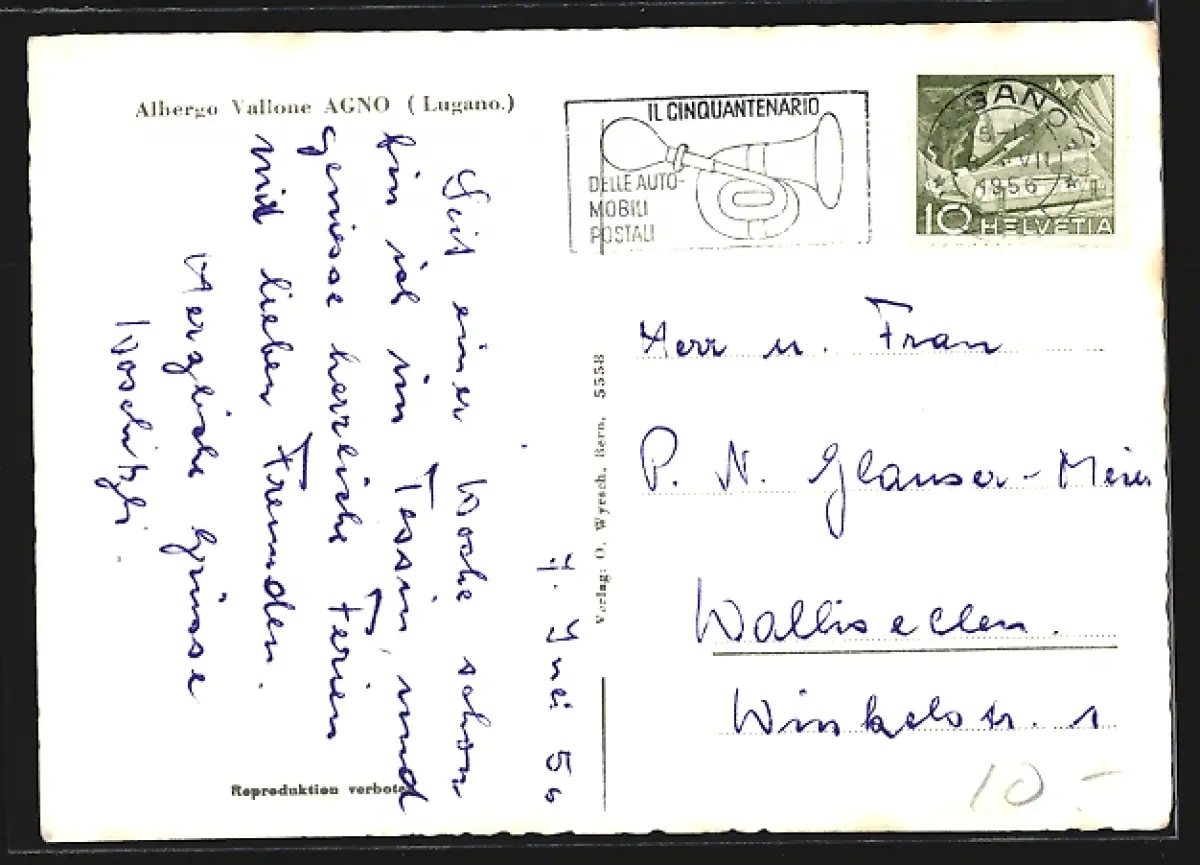 Albergo Vallone AGNO (Lugano.)
IL CINQUANTENARIO
DELLE AUTO-
MOBILI
POSTALI
1956
10 HELVETIA
7. Juli 56
Seit einer Woche schon
bin ich im Tessin, und
geniesse herrliche Ferien
mit lieben Freunden.
Herzliche Grüsse
Verlag: O. Wyrsch, Bern. 5558
Herr u. Frau
P. N. Glauser-Meier
Wallisellen.
Winkelstr. 1
Reproduktion verboten
10.-